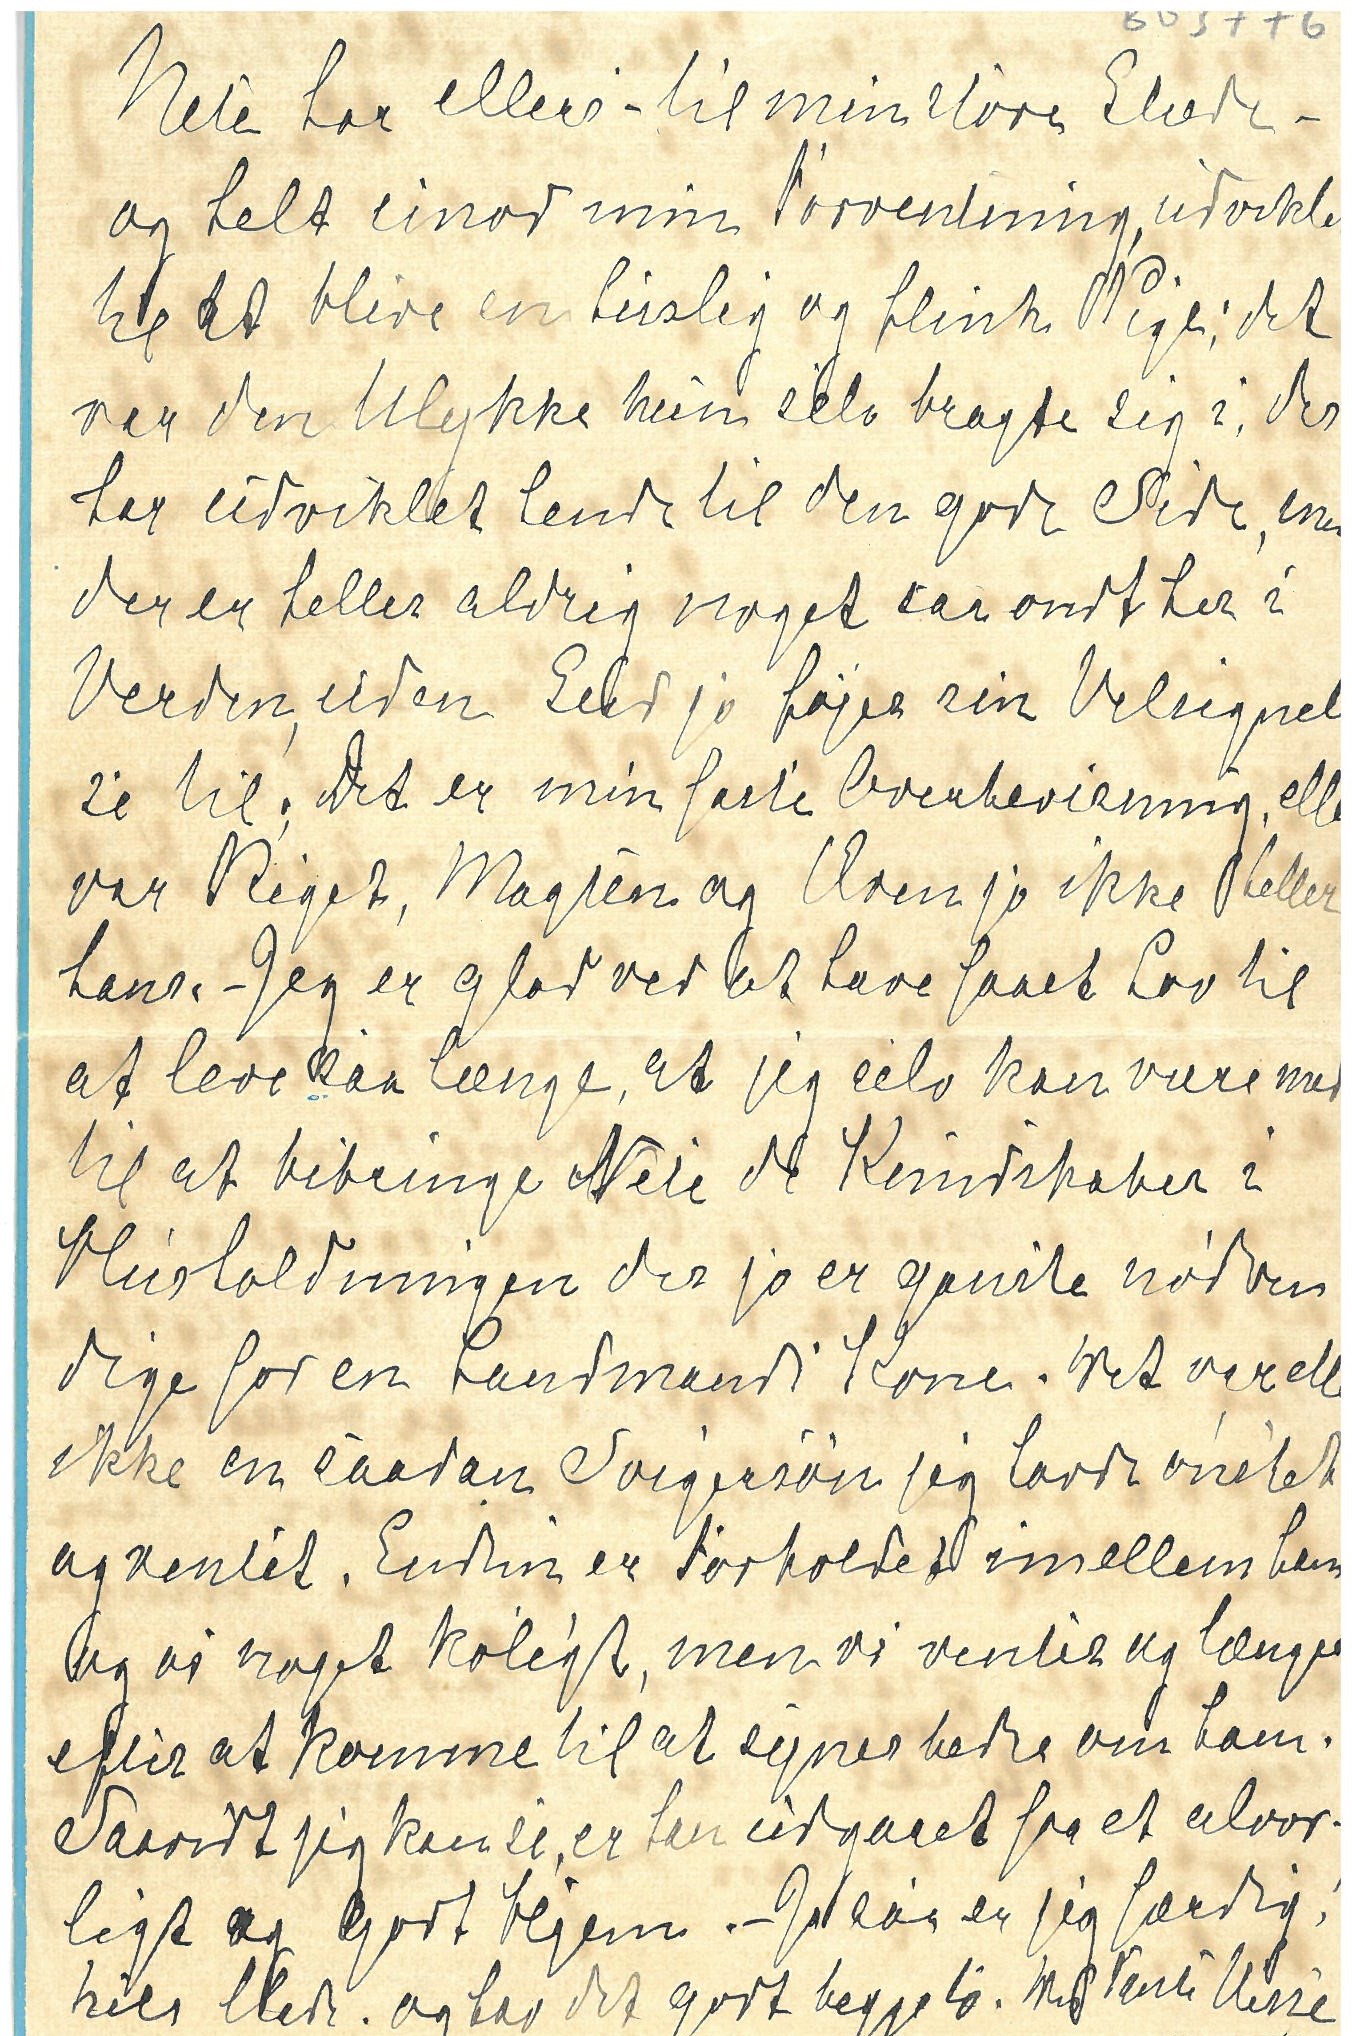 Nete har ellers - til min store Glæde -
og helt imod min Forventning, udvikle
til at blive en huslig og flink Pige; det
var den Ulykke hun selv bragte sig i, der
har udviklet hende til den gode Side, men
der er heller aldrig noget saa ondt her i
Verden, uden Gud jo føjer sin Velsignel
se til; det er min faste Overbevisning, elle
var Riget, Magten og Æren jo ikke heller
hans. - Jeg er glad ved at have faaet Lov til
at leve saa længe, at jeg selv kan være med
til at bibringe Nete de Kundskaber i
Husholdningen der jo er ganske nødven
dige for en Landmands Kone. Det var elle
ikke en saadan Svigersøn jeg havde ønsket
og ventet. Endnu er Forholdet imellem ham
og os noget køligt, men vi venter og længes
efter at komme til at synes bedre om ham.
Saavidt jeg kan se, er han udgaaet fra et alvor-
ligt og godt Hjem. - Ja saa er jeg færdig;
hils . og hav det godt begge to. Tante